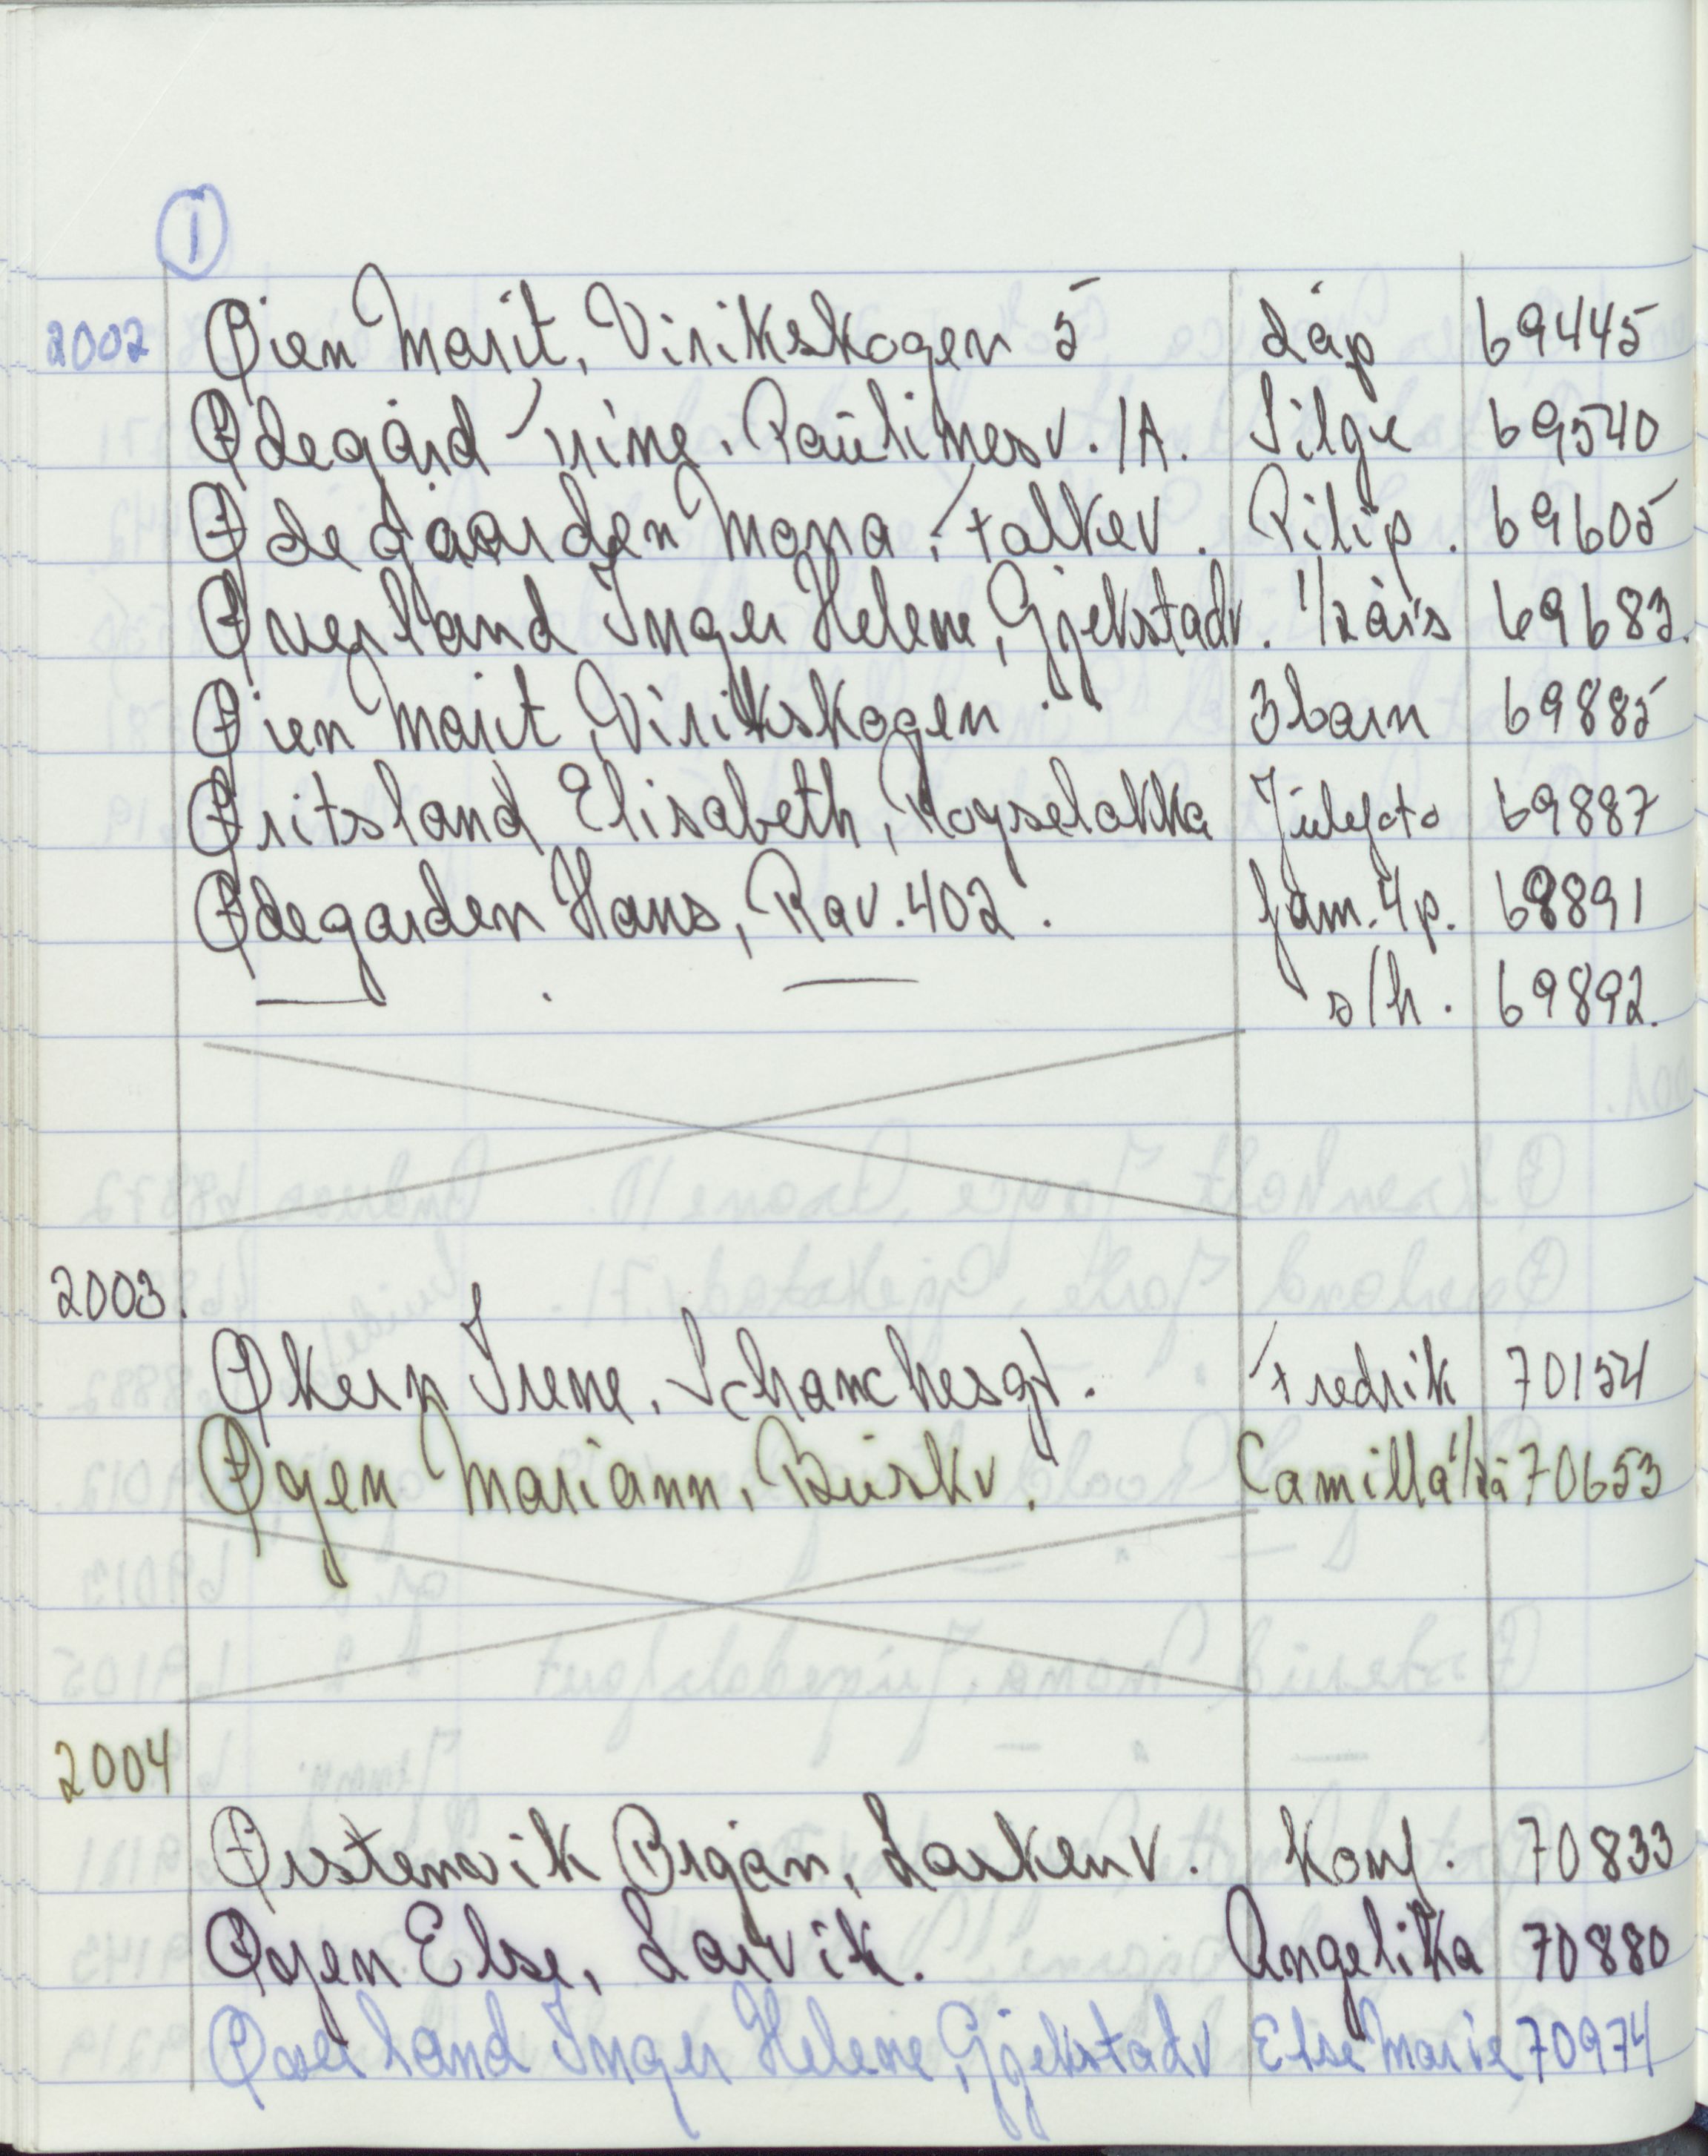 1
2002 Øien Marit, Virikskogen 5 dåp 69445
Ødegård Trine. Paulinesv. 1A. Silje 69540
Ødegaarden Mona, Falkev. Pilip. 69605
Øverland Inger Helene, Gjekstadv. 1/2 års 69683.
Øien Marit, Virikskogen 3 barn 69885
Øritsland Elisabeth, Røyseløkka Julefoto 69887
Ødegarden Hans, Rav. 402. fam. 4p. 69891
— . — s/h. 69892.
2003.
Økern Irene, Schanchesgt. Fredrik 70154
Øyen Mariann, Buskv. Camilla 1/2å 70653
2004
Ørstenvik Ørjan, Løskenv. Konf. 70833
Øyen Else, Larvik. Angelika 70880
Øverland Inger Helene, Gjekstadv Else Marie 70974